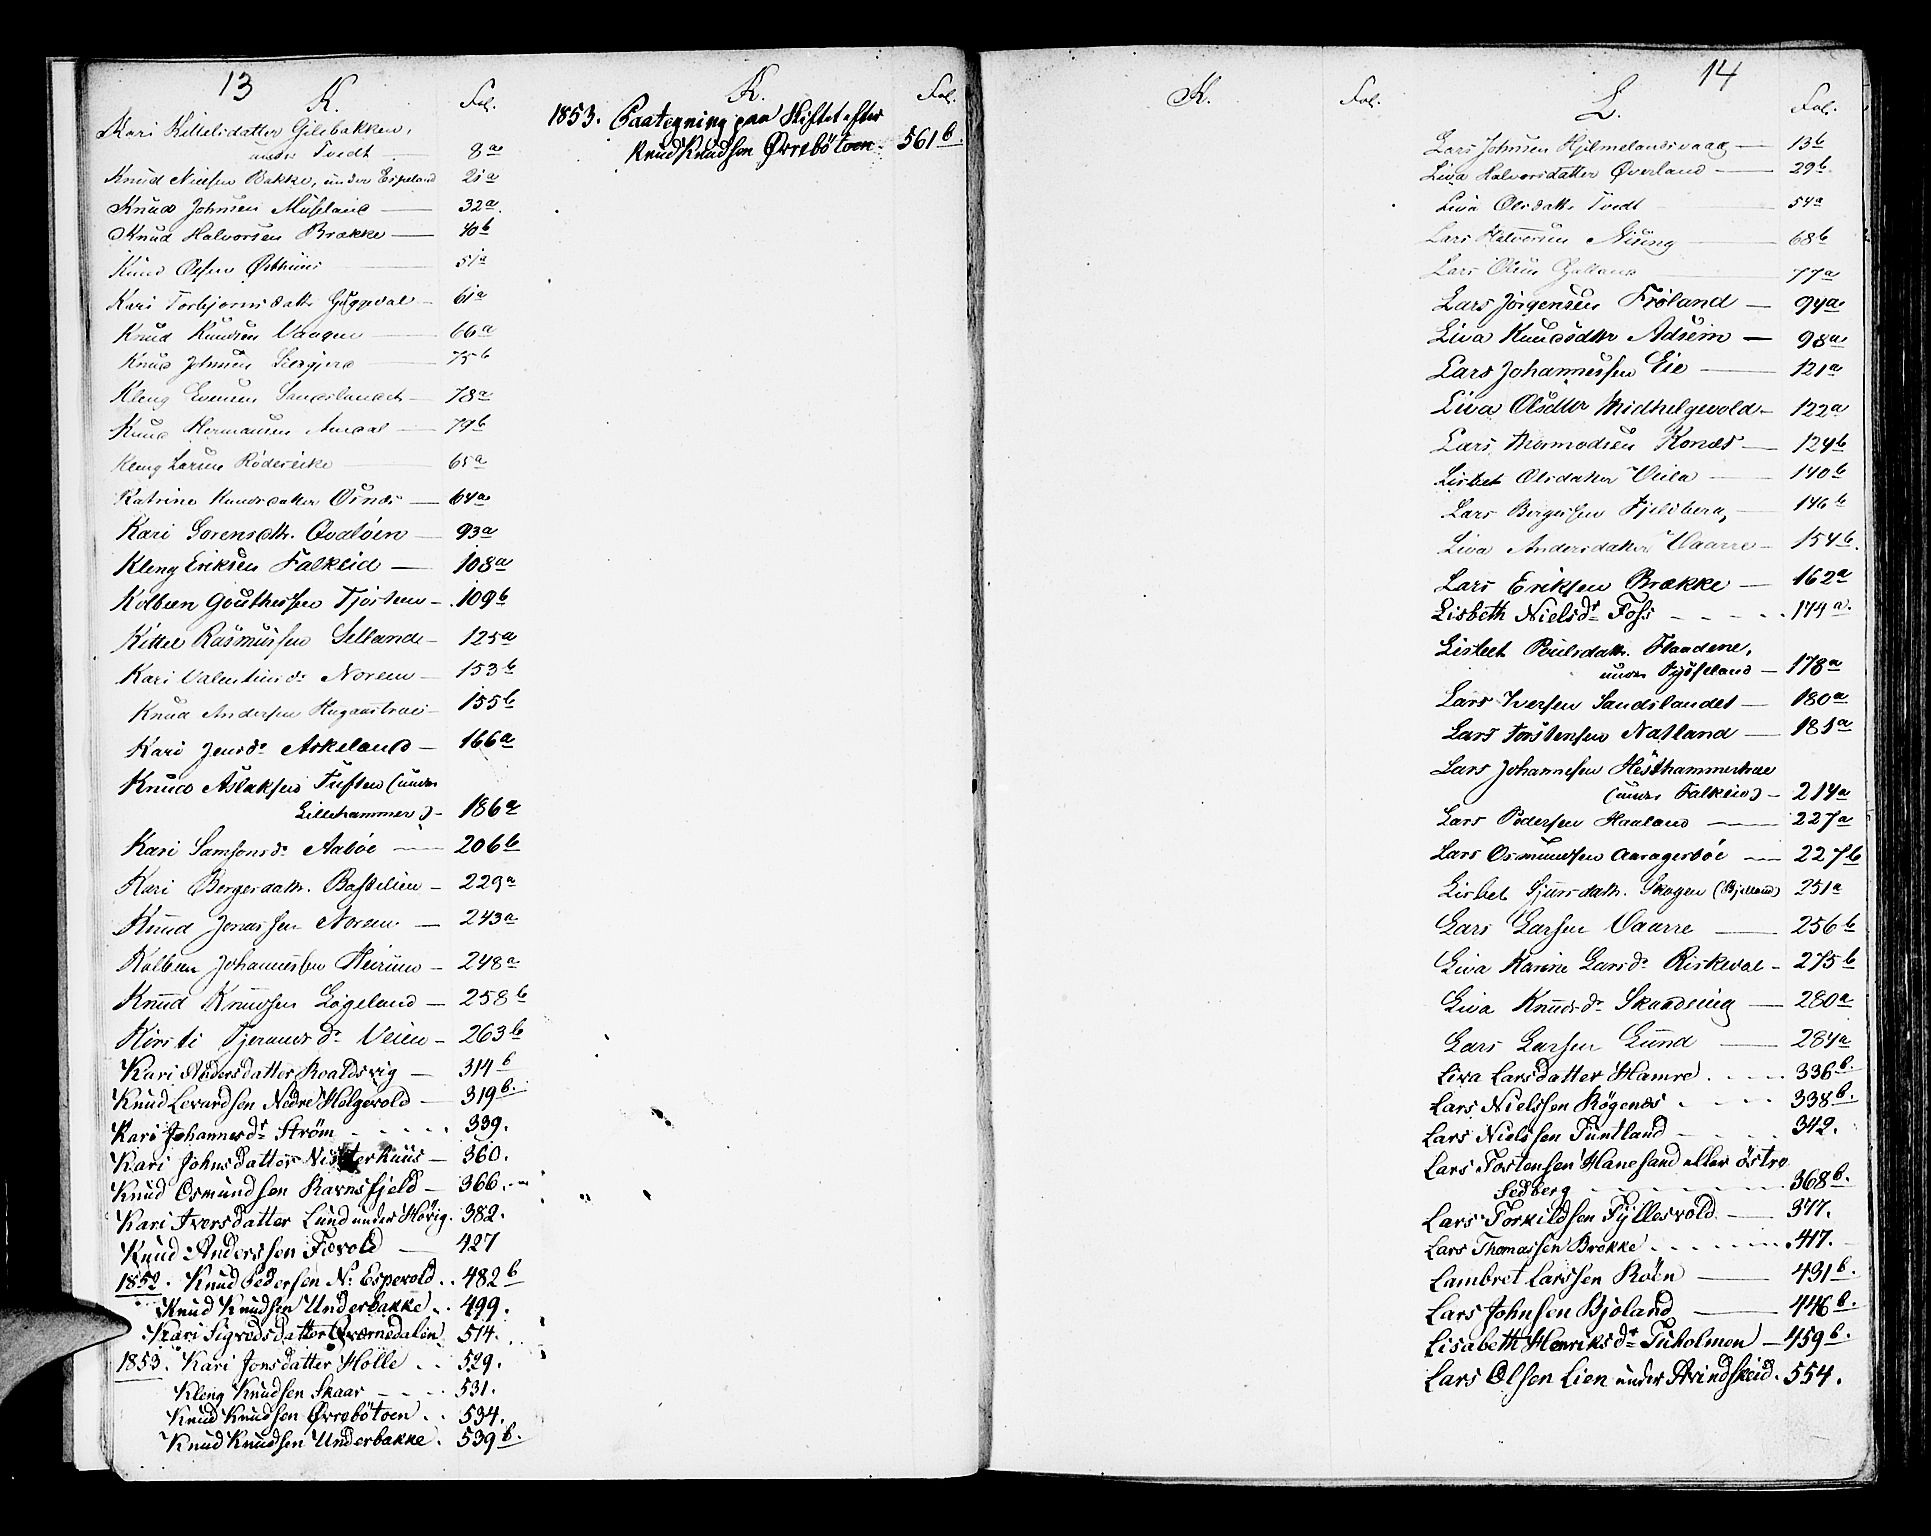 13
K.
Fol.
Kari Kittelsdatter Gilebakken,
under Tvedt 8a
Knud Nielsen Bakke, under Espeland 21a
Knud Johnsen Museland 32a.
Knud Halvorsen Brække 40b
Knud Olsen Østhuus 51a
Kari Torbjørnsdatter 61a
Knud Knudsen Vaagen 66a
Knud Johnsen 75b
Kleng Evensen Sandslandet 78a
Knud Hermansen 79b
Kleng Larsen 65a
Katrine Knudsdatter Osnes 64a
Kari Sorensdtr. Qvaløen 93a
Kleng Eriksen Falkeid 108a
Kolbeen Gouthessen Tjosteen 109b
Kittel Rasmussen Sellande 125a
Kari Valentinsdr Noreen 153b
Knud Andersen 155b
Kari Jensdr Askeland 166a
Knud Aslaksen Tuften (under
Lillehammer) 186a
Kari Samsonsdr Aabøe 206b
Kari Bergesdatr. Basselien 229a
Knud Jonassen Noreen 243a
Kolbeen Johannessen 248a
Knud Knudsen Løgeland 258b
Kirsti Tjeransdr Veien 263b
Kari Andersdatter Roaldsvig 314b
Knud Levardsen Nedre Helgevold 319b.
Kari Johannesdr Strøm 339.
Kari Johnsdatter 360.
Knud Osmundsen Ravnsfjeld 366.
Kari Iversdatter Lund under Høvig. 382.
Knud Anderssen Fævold 427
1852. Knud Pedersen N: Espevold 482b
Knud Knudsen Underbakke 499.
Kari Sigvedsdatter Qvernedalen 514.
1853. Kari Jonsdatter Holle 529.
Kleng Knudsen Skaar 531.
Knud Knudsen Øvrebötoen 534.
Knud Knudsen Underbakke 539b.
K.
Fol.
1853. Paategning paa Skiftet efter
Knud Knudsen Øvrebötoen 561b.
K.
Fol.
14
L.
Fol.
Lars Johnsen Hjelmelandsvaag 13b
Liva Halvorsdatter Øverland 29b.
Liva Olsdatter Tvedt 54a
Lars Halvorsen 68b
Lars Olsen 77a
Lars Jørgensen Frøland 94a
Liva Knudsdtr Adseim 98a
Lars Johannessen Eie 121a
Liva Olsdtter Midthelgevold 122a
Lars Thormodsen Konæs 124b
Lisbet Olsdatter Veila 140b
Lars Birgersen Fjeldberg 146b
Liva Andersdatter Vaarre 154b.
Lars Eriksen Brække 162a
Lisbeth Nielsdr Foss 174a.
Lisbet Poulsdatr. Flaadene,
under Tysseland 178a
Lars Iversen Sandslandet 180a
Lars Torstensen Natland 181a
Lars Johannesen Hesthammertræe
(under Falkeid) 214a
Lars Pedersen Haaland 227a
Lars Osmundsen Aaragerbøe 227b
Lisbet Sjursdatr. Skogen (Bjelland) 251a
Lars Larsen Vaarre 256b
Liva Karine Larsdr Riskedal 275b
Liva Knudsdr Skandsing 280a
Lars Larsen Lund 284a
Liva Larsdatter Hamre 336b.
Lars Nielssen Røgenæs 338b.
Lars Nielssen Tuntland 342.
Lars Tostensen Hanesand eller östre
Sedberg 368b.
Lars Torkildsen Fyllesvold 377.
Lars Thomassen Brekke 417.
Lambret Larssen Roen 431b.
Lars Johnsen Bjoland 446b.
Lisabeth Henriksdr Tuholmen 459b.
Lars Olsen Lien under Arindskeid. 554.